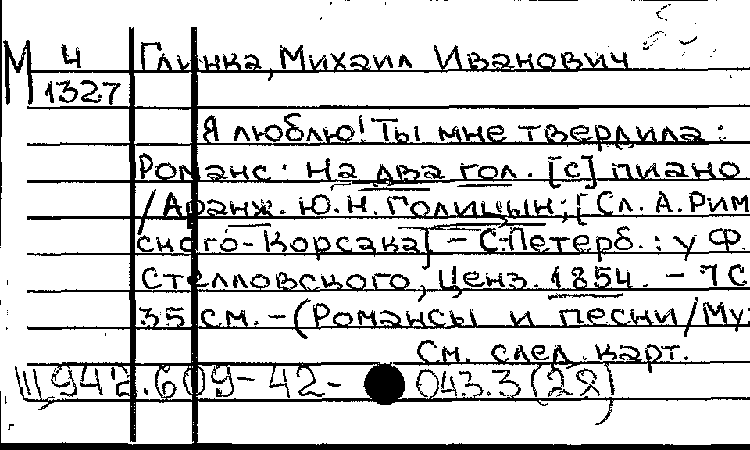 М 4 Глинка, Михаил Иванович
1327
Я люблю! Ты мне твердила :
Романс. На два гол. [с] пиано
/Аранж. Ю.Н. Голицын; [Сл. А. Рим
ского-Корсака] – С.-Петерб. : у Ф
Стелловского, Ценз. 1854. – 7 С
35 см. – (Романсы и песни/Му
См. след. карт.
942.609-42- 043.3(2Я)